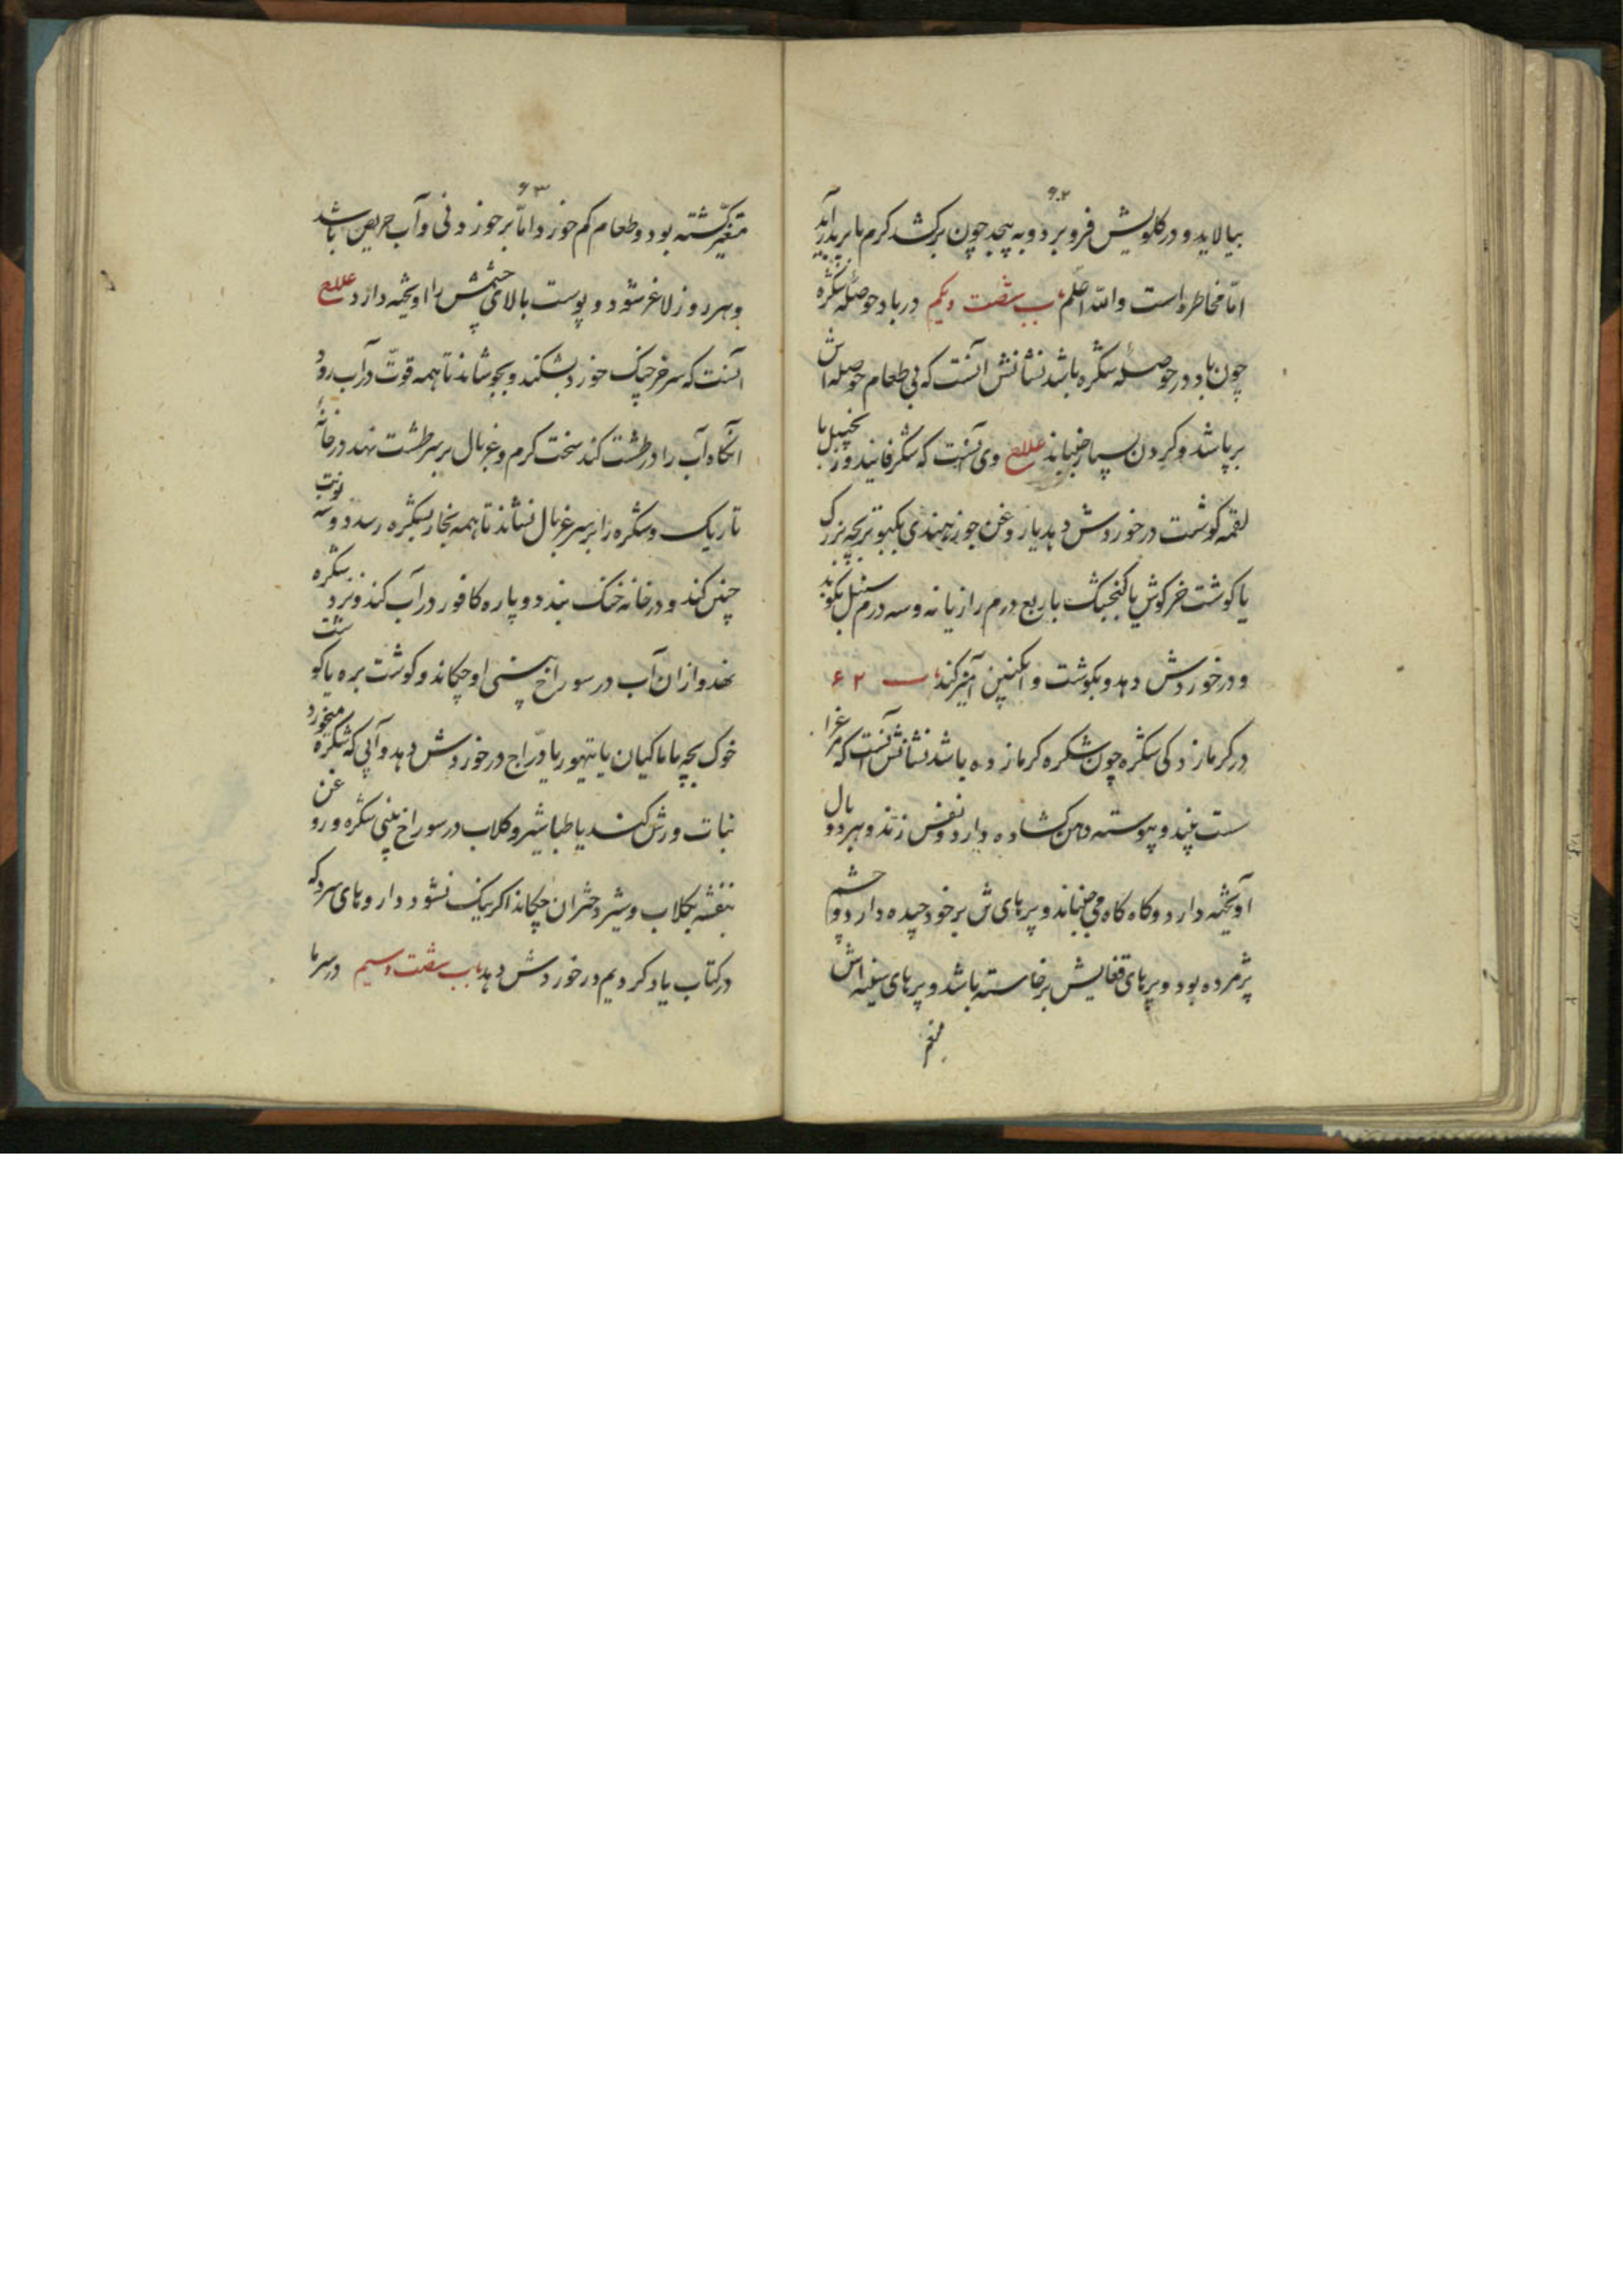 ۶۲
بیالاید و در کلویش فرو برد و به پیچد چون برکشد کرم با پر بدر آید
امّا مخاطره است والله اعلم باب شصت و یکم در باد حوصلهٔ شکره
چون باد در حوصلهٔ شکره باشد نشانش آنست که بی طعام حوصله اش
بر باشد و کردن بسیار جنباند علاج وی آنست که شکر فانید و زنجبیل با
لقمه کوشت در خوردش دهد یا روغن جوز هندی بکبوتر بچه بزرک
یا کوشت خرکوش یا کنجشک با ربع درم رازیانه و سه درم سنبل بکوبد
و در خوردش دهد و بکوشت و انکبین آمیز کند باب ۶۲
در کرمازدکی شکره چون شکره کرمازده باشد نشانش آنست که مرغ را
سست بیند و پیوسته دهن کشاده دارد و نفس زند و هر دو بال
آویخته دارد و کاه کاه می جنباند و پرهای ش بر خود چیده دارد و چشم
پژمرده بود و پرهای قفایش برخاسته باشد و پرهای سینه اش
متغیر
۶۳
متغیّر کشته بود و طعام کم خورد امّا بر خوردنی و آب حریص باشد
و هر روز لاغر شود و پوست بالای چشمش را اویخته دارد علاج
آنست که سر خرچنک خورد بشکند و بجوشاند تا همه قوّت در آب رود
آنکاه آب را در طشت کند سخت کرم و غربال بر سر طشت نهد در خانهٔ
تاریک و شکره را بر سر غربال نشاند تا همه بخار بشکره رسد دو سه نوبت
چنین کند و در خانه خنک بندد و پاره کافور در آب کند و نزد شکره
نهد و از ان آب در سوراخ بینی او چکاند و کوشت بره یا کوشت
خوک بچه یا ماکیان یا تیهو یا درّاج در خوردش دهد و آبی که شکره میخورد
نبات ورش کند یا طباشیر و کلاب در سوراخ بینی شکره و روغن
بنفشه بکلاب و شیر دختران چکاند اکر نیک نشود داروهای سرد که
در کتاب یاد کردیم در خوردش دهد باب شصت و سیم در سرما